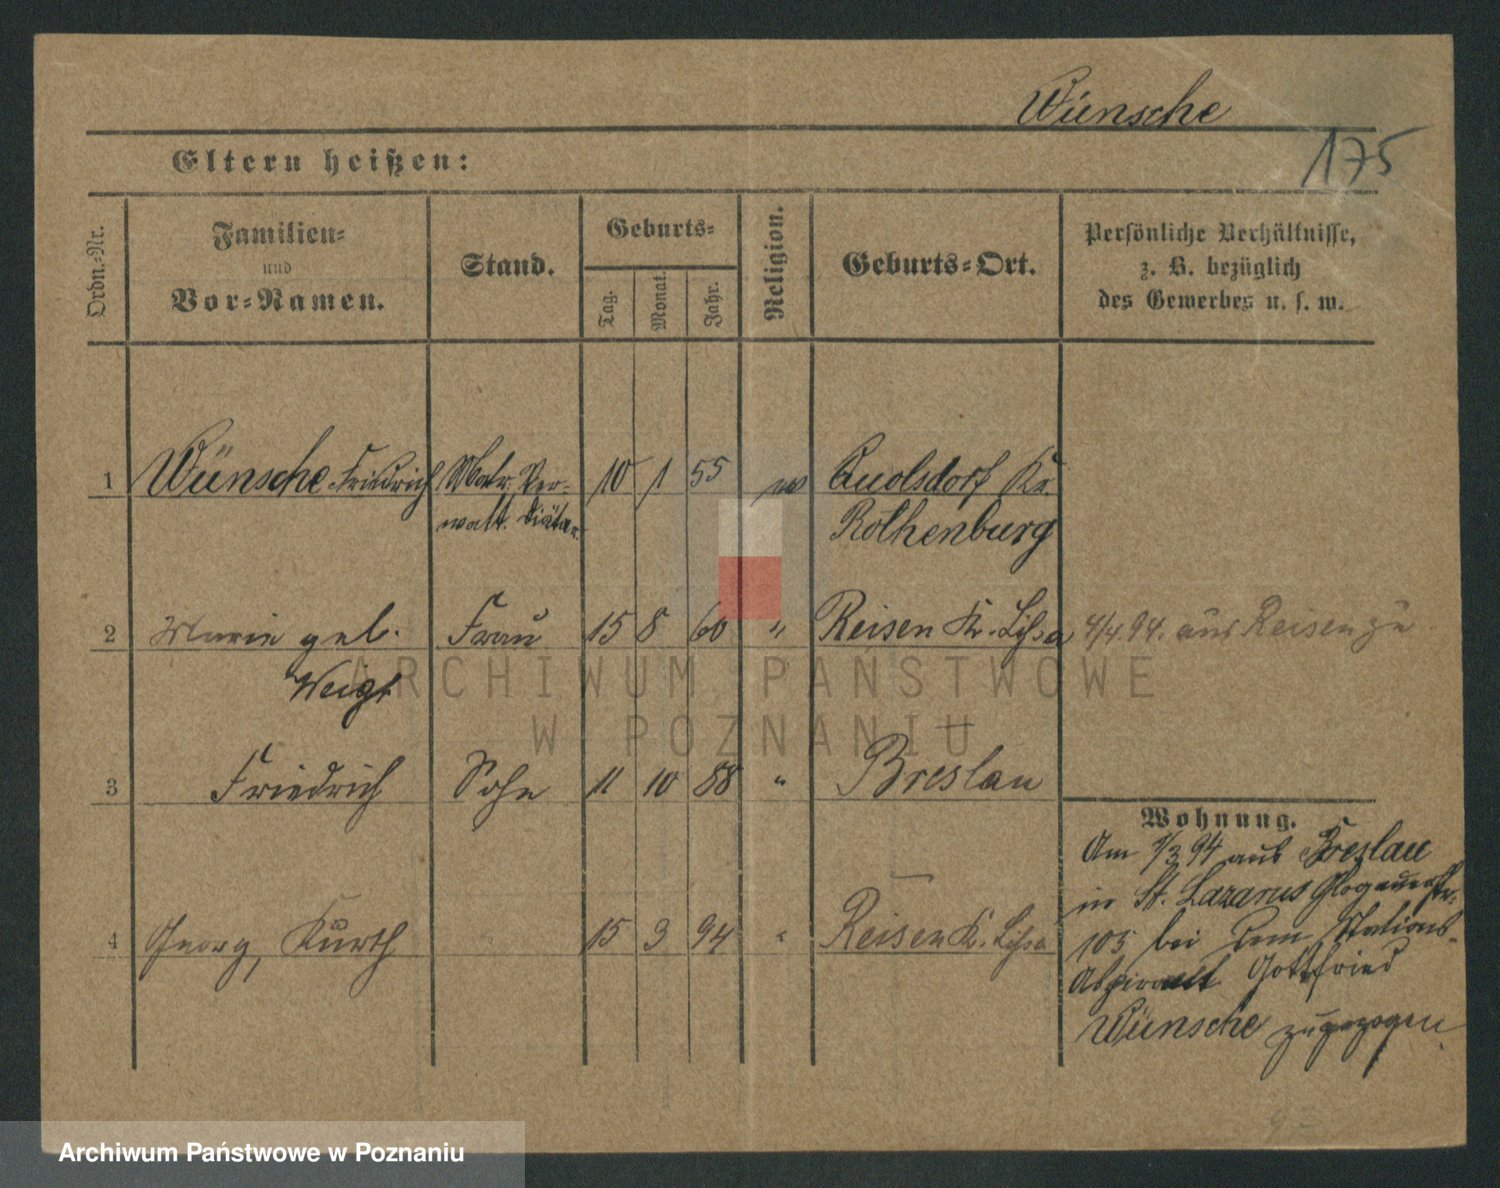 Wünsche
175
Eltern heißen:
Ordn.-Nr.
Familien-
und
Vor-Namen.
Stand.
Geburts-
Tag.
Monat.
Jahr.
Religion.
Geburts-Ort.
Persönliche Verhältnisse,
z. B. bezüglich
des Gewerbes u. s. w.
1 Wünsche Friedrich Matr. Ver- 10 1 55 ev Quolsdorf Kr.
walt. Diätar Rothenburg
2 Marie geb. Frau 15 8 60 " Reisen Kr. Lissa 4/4.94. aus Reisen zu
Weigt
3 Friedrich Sohn 11 10 88 " Breslau
Wohnung.
Am 1/3 94 aus Breslau
in St. Lazarus Glogauerstr.
4 Georg, Kurth " 15 3 94 " Reisen Kr. Lissa
105 bei dem Stations-
Aspirant Gottfried
Wünsche zugezogen.
ARCHIWUM PAŃSTWOWE
W POZNANIU
Archiwum Państwowe w Poznaniu